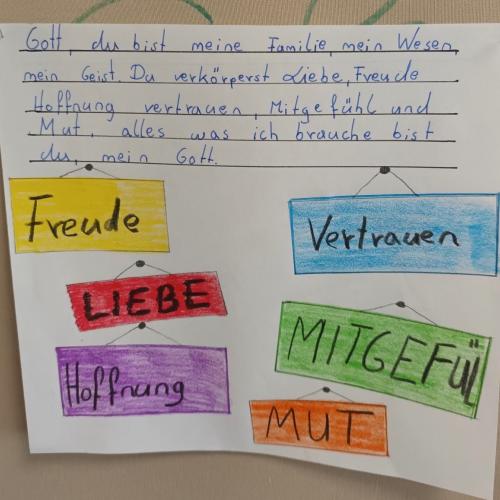 Gott, du bist meine Familie, mein Wesen,
mein Geist. Du verkörperst Liebe, Freude
Hoffnung vertrauen, Mitgefühl und
Mut, alles was ich brauche bist
du, mein Gott.
Freude
Vertrauen
LIEBE
MITGEFÜL
Hoffnung
MUT